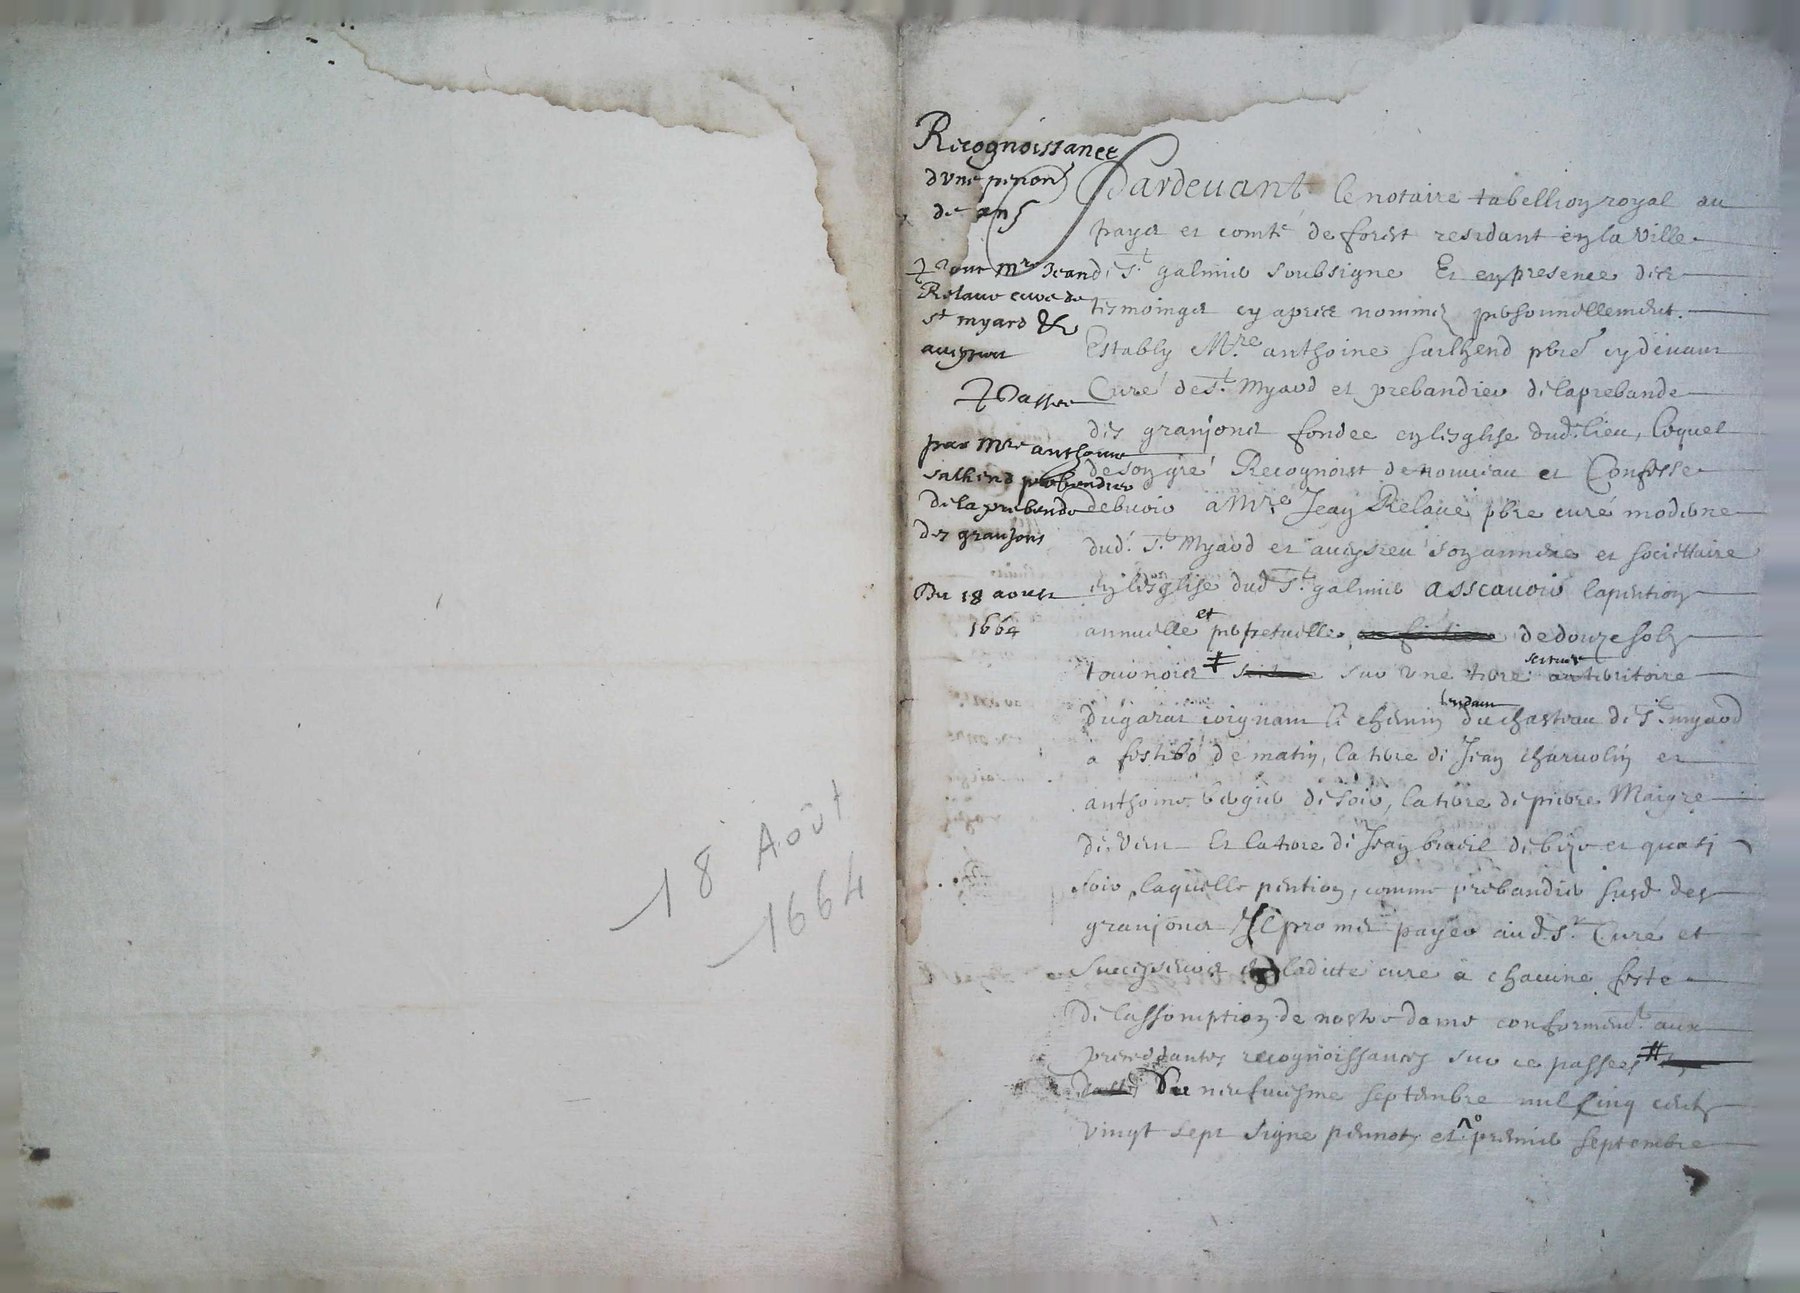 18 Août
1664
Recognoissance
dune pension
de
pour mre Jean
Relaue cure de
st myard &
aueyseu
Passee
par mre anthoine
salhend prebendier
de la prebende
des granjons
Du 18 aoust
1664
Pardeuant le notaire tabellion royal au
pays et comté de forest residant en la ville
de St. galmier soubsigne Et en presence des
tesmoings cy apres nommez personnellement
Estably Mre. anthoine salhend pbre cy deuant
Curé de St. Myard et prebandier de la prebande
des granjons fondee en lesglise dud. lieu, lequel
de son gré Recognoist de nouueau et Confesse
debuoir a Mre Jean Relaue pbre curé moderne
dud. St. Myard et aueyseu son annexe et societtaire
en lesglise dud St. galmier asscauoir la pention
annuelle et perpetuelle, de douze solz
tournois sur une terre territoire
du garat joignant le chemin tendant du chasteau de St. myard
a de matin, la terre de Jean charuolin et
anthoine de soir, la terre de pierre Maigre
de vent Et la terre de Jean de bize et quasi
soir, laquelle pention, comme prebandier susd des
granjons Il promet payer aud. Sr. Curé et
successeurs ladicte cure a chacune feste
de lassomption de nostre dame conformemt. aux
precedantes recognoissances sur ce passees
Du neufuiesme septembre mil cinq centz
vingt sept signe pernot, et premier septembre